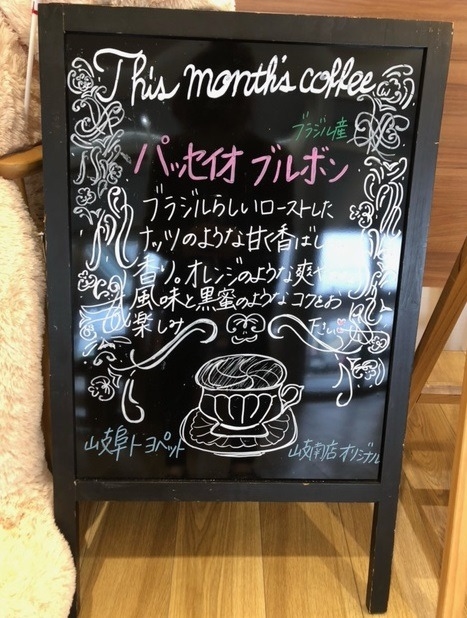 This month's coffee
ブラジル産
パッセイオ ブルボン
ブラジルらしいローストした
ナッツのような甘く香ばし
香り。オレンジのような爽
風味と黒蜜のようなコクをお
楽しみ ださい
岐阜トヨペット
岐南店オリジナル